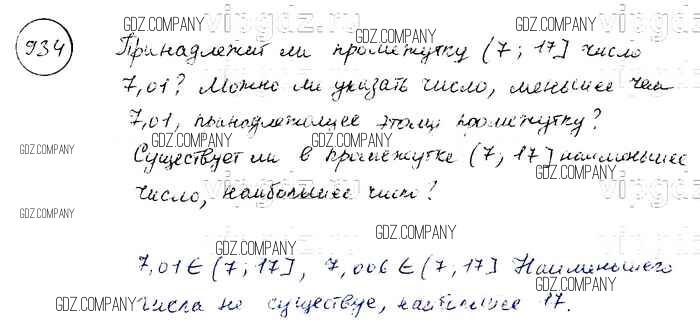 934
Принадлежит ли промежутку (7; 17] число
7,01? Можно ли указать число, меньшее чем
7,01, принадлежащее этому промежутку?
Существует ли в промежутке (7; 17] наименьшее
число, наибольшее число?
7,01 ∈ (7; 17], 7,006 ∈ (7; 17] Наименьшего
числа не существуе, наибольшее 17.
GDZ.COMPANY
GDZ.COMPANY
GDZ.COMPANY
GDZ.COMPANY
GDZ.COMPANY
GDZ.COMPANY
GDZ.COMPANY
GDZ.COMPANY
GDZ.COMPANY
GDZ.COMPANY
GDZ.COMPANY
GDZ.COMPANY
GDZ.COMPANY
GDZ.COMPANY
vipgdz.ru
vipgdz.ru
vipgdz.ru